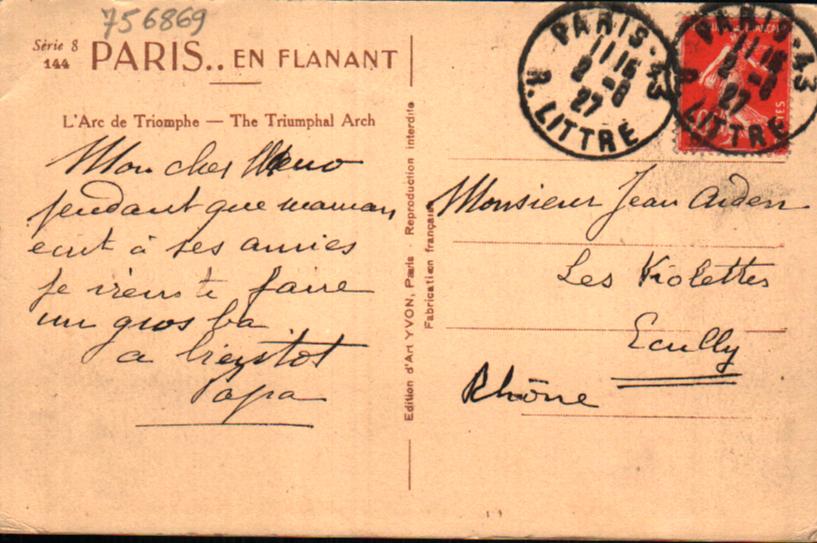 756869
Série 8
144
PARIS.. EN FLANANT
L'Arc de Triomphe — The Triumphal Arch
Mon cher
pendant que maman
ecrit à ses amies
je viens te faire
un gros ba
a bientot
Papa
Edition d'Art YVON, Paris - Reproduction interdite
Fabrication française
PARIS-43
11 15
2 -8
27
R. LITTRÉ
PARIS-43
11 15
2 -8
27
R. LITTRÉ
Monsieur Jean
Les Violettes
Ecully
Rhône